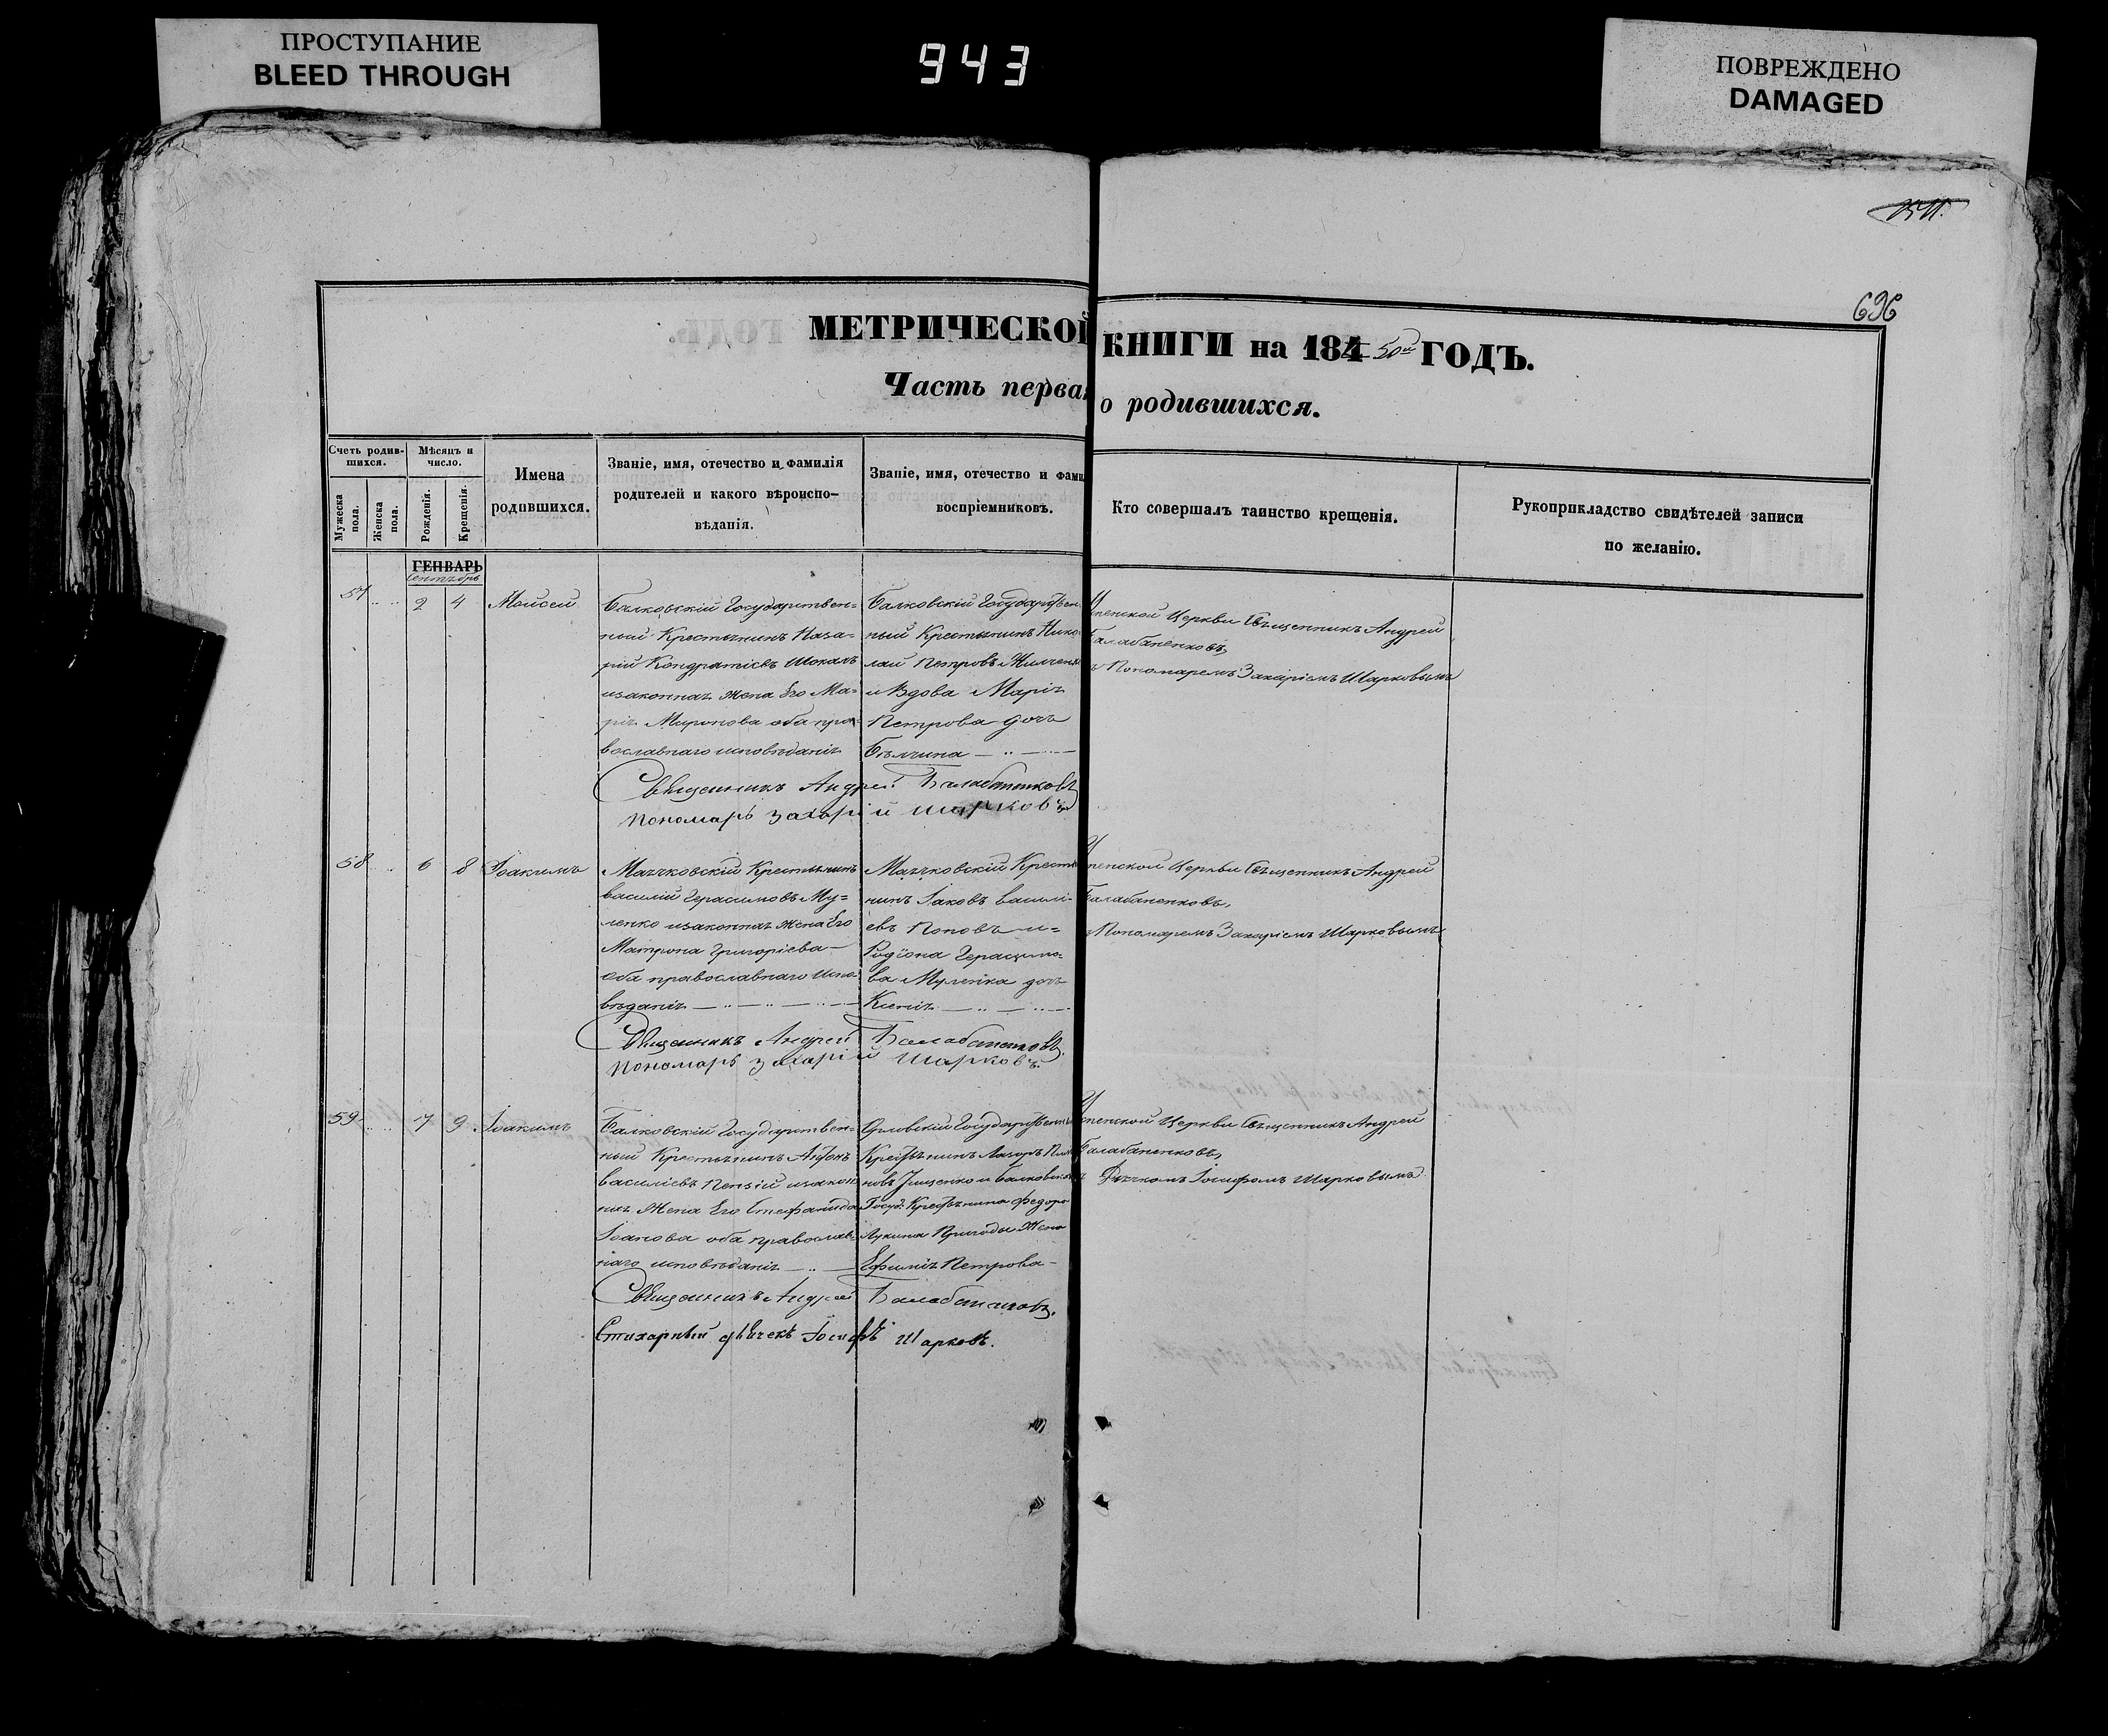 ПРОСТУПАНИЕ
BLEED THROUGH
943
ПОВРЕЖДЕНО
DAMAGED
696
МЕТРИЧЕСКОЙ КНИГИ на 184 50й ГОДЪ.
Часть первая о родившихся.
Счетъ родив-
шихся.
Мужеска
пола.
Женска
пола.
Мѣсяцъ и
число.
Рожденія.
Крещенія.
Имена
родившихся.
Званіе, имя, отечество и фамилія
родителей и какого вѣроиспо-
вѣданія.
Званіе, имя, отечество и фами
воспріемниковъ.
Кто совершалъ таинство крещенія.
Рукоприкладство свидѣтелей записи
по желанію.
ГЕНВАРЬ
Сентябрь
57 2 4 Моисей
Балковскій Государствен=
ный Крестьянинъ Наза=
рій Кондратіевъ
изаконная жена Его Ма=
рія Миронова оба пра=
вославнаго исповѣданія
Балковскій Государствен
ный Крестьянинъ Нико
лай Петровъ
и Вдова Марія
Петрова дочь
Успенской Церкви Священникъ Андрей
Балабаненковъ,
съ Пономаремъ Захаріемъ Шарковымъ
Священникъ Андрей Балабаненковъ
Пономарь Захарій Шарковъ
58 6 8 Іоакимъ
Маячковскій Крестьянинъ
Василій Герасимовъ Му=
ленко изаконная жена Его
Матрона Григоріева
оба православнаго испо
вѣданія
Маячковскій Крестья
нинъ Іаковъ Васили
евъ Поповъ и=
Родіона Герасимо=
ва Муленка дочь
Ксенія
Успенской Церкви Священникъ Андрей
Балабаненковъ,
съ Пономаремъ Захаріемъ Шарковымъ
Священникъ Андрей Балабаненковъ
Пономарь Захарій Шарковъ.
59 7 9 Іоакимъ
Балковскій Государствен=
ный Крестьянинъ
Василіевъ изакон
ная Жена Его Стефанида
Іоанова оба православ=
наго исповѣданія
Орловскій Государственны
Крестьянинъ Лазарь
новъ и Балковскаго
Госуд: Крестьянина Федора
Лукина Пригоды Жена
Ефимія Петрова
Успенской Церкви Священникъ Андрей
Балабаненковъ,
съ Дьячкомъ Іосифомъ Шарковымъ
Священникъ Андрей Балабаненковъ.
Стихарный дьячекъ Іосифъ Шарковъ.